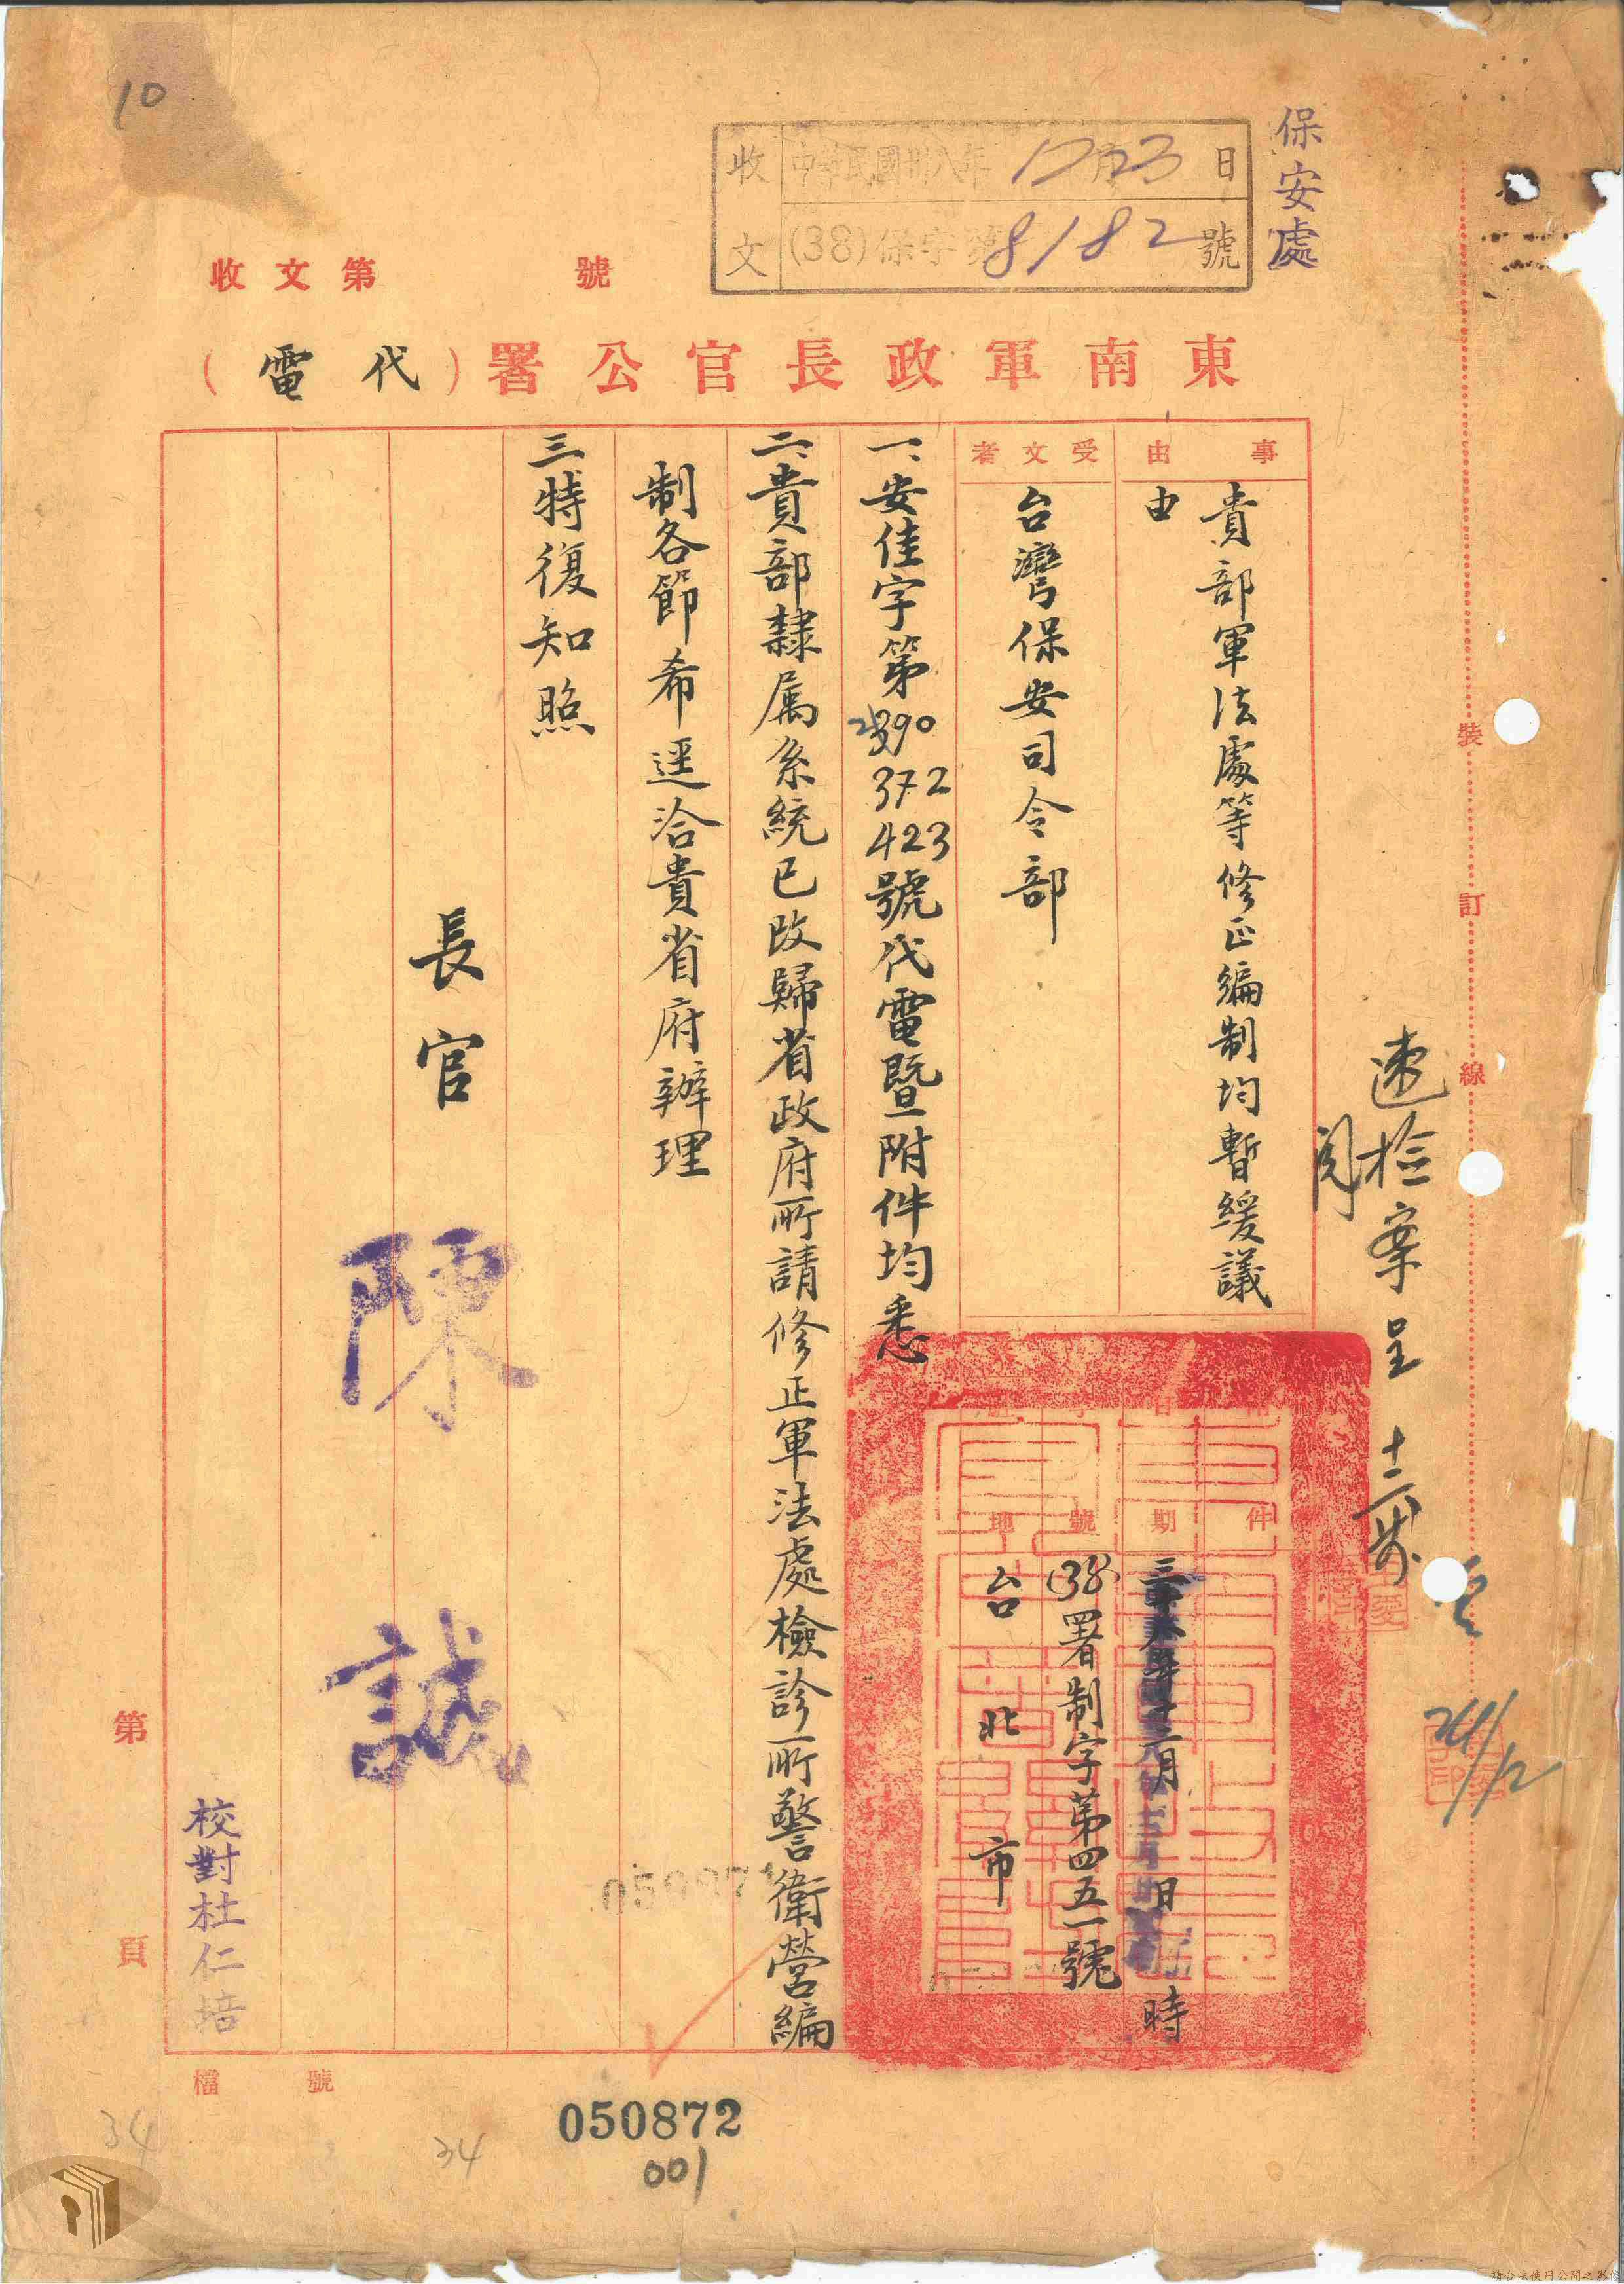 10
保安處
收文 中華民國卅八年12月23日
(38)保字第8182號
收文第 號
東南軍政長官公署(代電)
事由
貴部軍法處等修正編制均暫緩議
由
受文者
台灣保安司令部
件
期
三十八年十二月 日 時
號
(38)署制字第四五一號
地
台北市
一、安佳字第390
372
423號代電暨附件均悉
二、貴部隸属系統已改歸省政府所請修正軍法處檢診所警衛營編
制各節希逕洽貴省府辦理
三特復知照
長官
陳誠
校對杜仁培
第 頁
檔 號
裝訂線
速檢案呈
閱
24/12
050872
001
34
34
請合法使用公開之影像